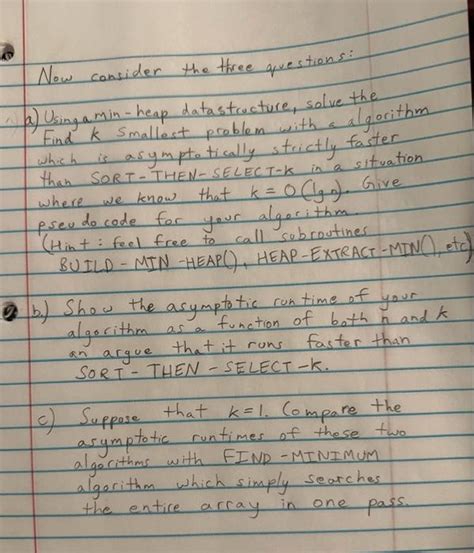 Now consider the three questions:
a) Using a min-heap datastructure, solve the
Find k smallest problem with a algorithm
which is asymptotically strictly faster
than SORT-THEN-SELECT-K in a situation
where we know that k = O(lg n). Give
pseudocode for your algorithm.
(Hint: feel free to call sobroutines
BUILD-MIN-HEAP(), HEAP-EXTRACT-MIN(), etc)
b) Show the asymptotic runtime of your
algorithm as a function of both n and k
an argue that it runs faster than
SORT-THEN-SELECT-K.
c) Suppose that k=1. Compare the
asymptotic runtimes of these two
algorithms with FIND-MINIMUM
algorithm which simply searches
the entire array in one pass.